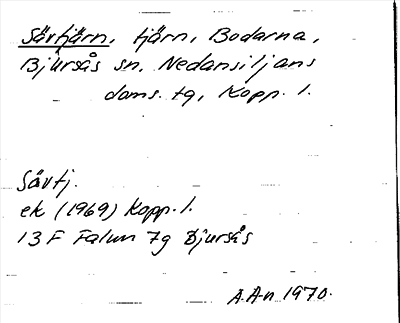 Sävtjärn, tjärn, Bodarna,
Bjursås sn, Nedansiljans
doms. tg, Kopp. l.
Sävtj.
ek (1969) Kopp. l.
13 F Falun 7g Bjursås
A.A-n 1970.